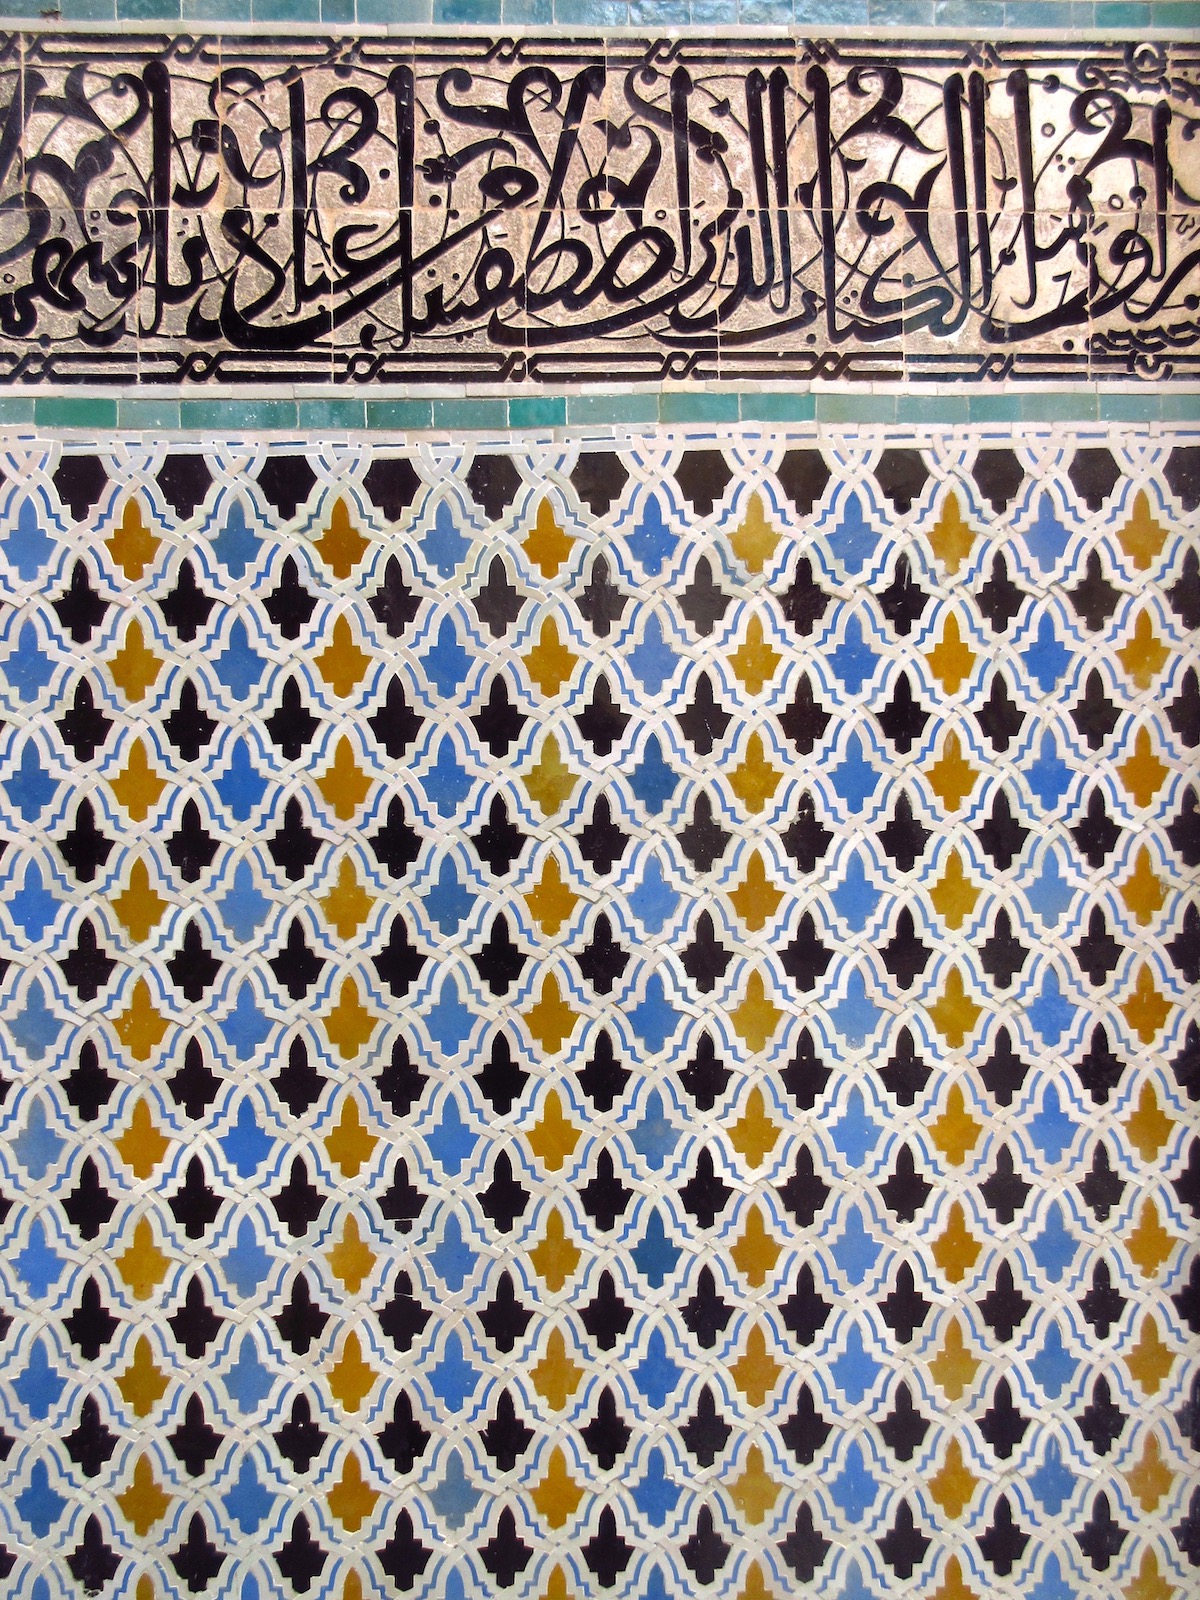 اورثنا الكتاب الذين اصطفينا من عبادنا فمنهم